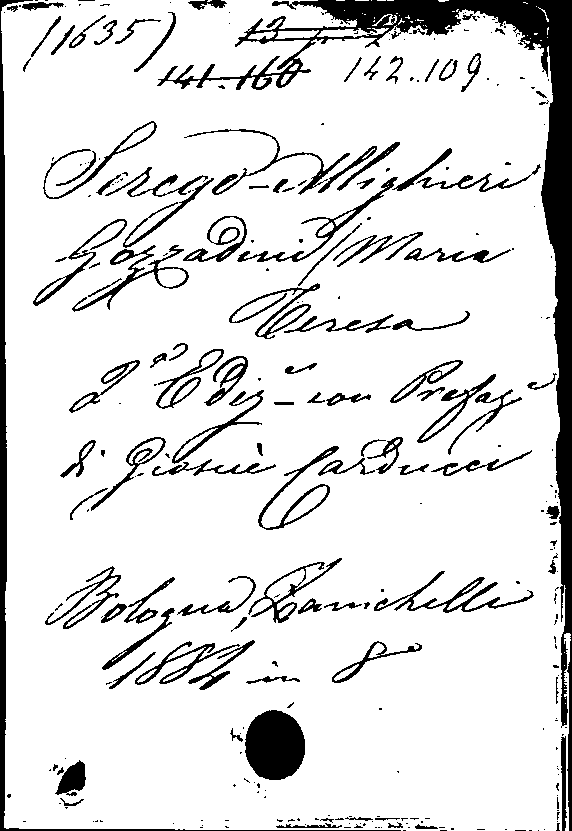 (1635) 13
141.160 142.109.
Serego-Allighieri
Gozzadini / Maria
Teresa
2ª Ediz.e con Prefaz.e
di Giosuè Carducci
Bologna, Zanichelli
1884 in 8°